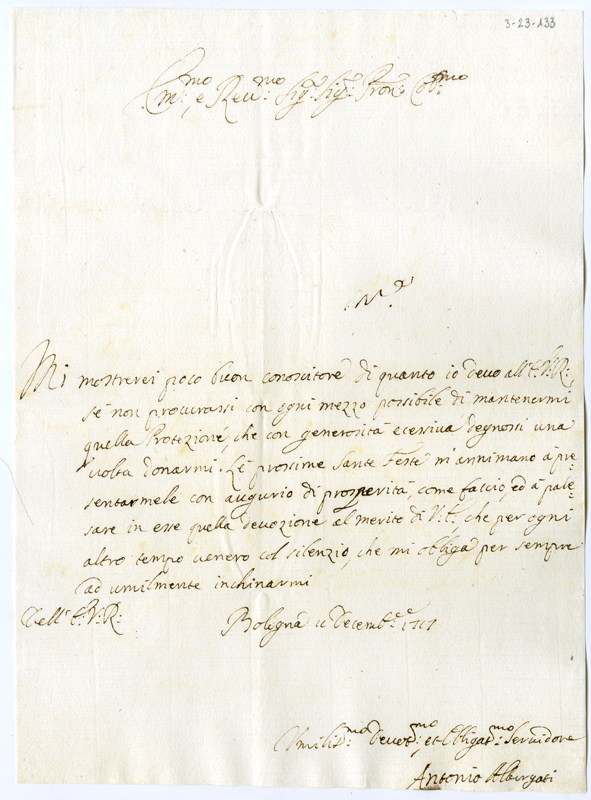 3-23-133
Em:mo, e Reu:mo Sig:r Sig:r Pron̄e Col:mo
Mi mostrerei poco buon conoscitore di quanto io deuo all'E:V:R:,
se non procurassi con ogni mezzo possibile di mantenermi
quella Protezione, che con generosità ecessiva degnossi una
volta donarmi. Le prossime Sante Feste m'annimano à pre=
sentarmele con augurio di prosperità, come faccio, ed à pale=
sare in esse quella deuozione al merito di V:E:, che per ogni
altro tempo uenero col silenzio, che mi obliga per sempre
ad umilmente inchinarmi
Dell'E:V:R:
Bologna Decemb:e 1717
Vmilis:mo Deuot:mo, et Obligat:mo Seruidore
Antonio Albergati